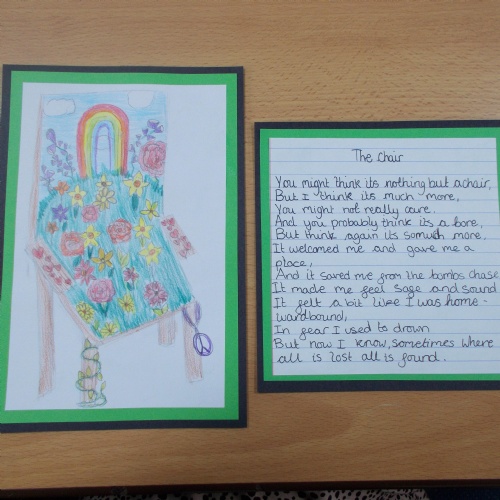 The chair
You might think its nothing but a chair,
But I think its much more,
You might not really care,
And you probably think its a bore,
But think again its somuch more,
It welcomed me and gave me a
place,
And it saved me from the bombs chase
It made me feel sage and sound
It felt a bit like I was home-
wardbound,
In fear I used to drown
But now I know, sometimes where
all is lost all is found.